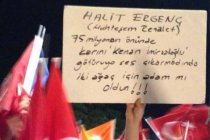 HALİT ERGENÇ
(Muhteşem Rezalet)
75 milyonun önünde
karını Kenan İmirzalıoğlu
götürüyo ses çıkarmadında
iki ağaç için adam mı
oldun!!!